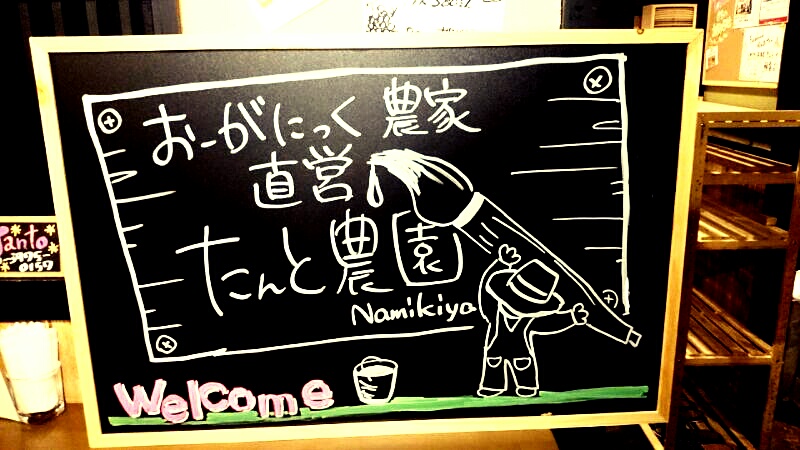 おーがにっく 農家
直営
たんと農園
Namikiya
Welcome
Tanto
3995-
0157